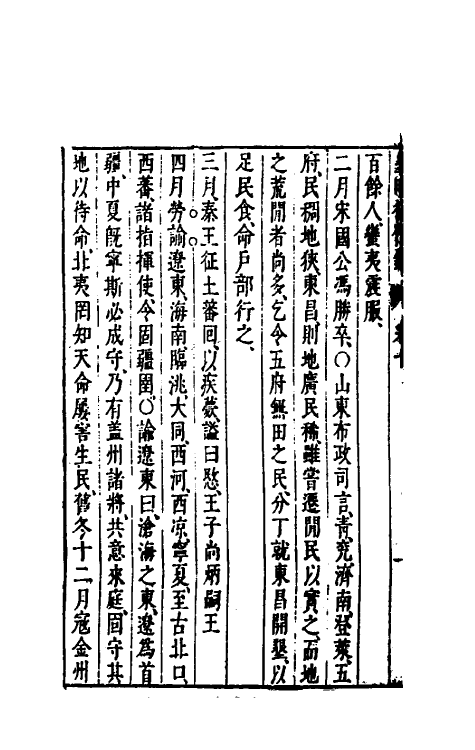 百餘人蠻夷震服、
二月宋國公馮勝卒、〇山東布政司言、青、兖、濟南、登、萊、五
府、民稠地狹、東昌則地廣民稀、雖嘗遷閒民以實之、而地
之荒閒者尚多、乞令五府無田之民、分丁就東昌開墾、以
足民食、命戶部行之、
三月、秦王征土蕃回、以疾薨、謚曰愍、王子尚炳嗣王
四月、勞諭遼東、海南、臨洮、大同、西河、西凉、寧夏、至古北口、
西蕃、諸指揮使、令固疆圉、〇諭遼東曰、滄海之東、遼為首
疆、中夏旣寧、斯必成守、乃有盖州諸將、共意來庭、固守其
地以待命、北夷罔知天命、屢害生民、舊冬十二、月寇金州